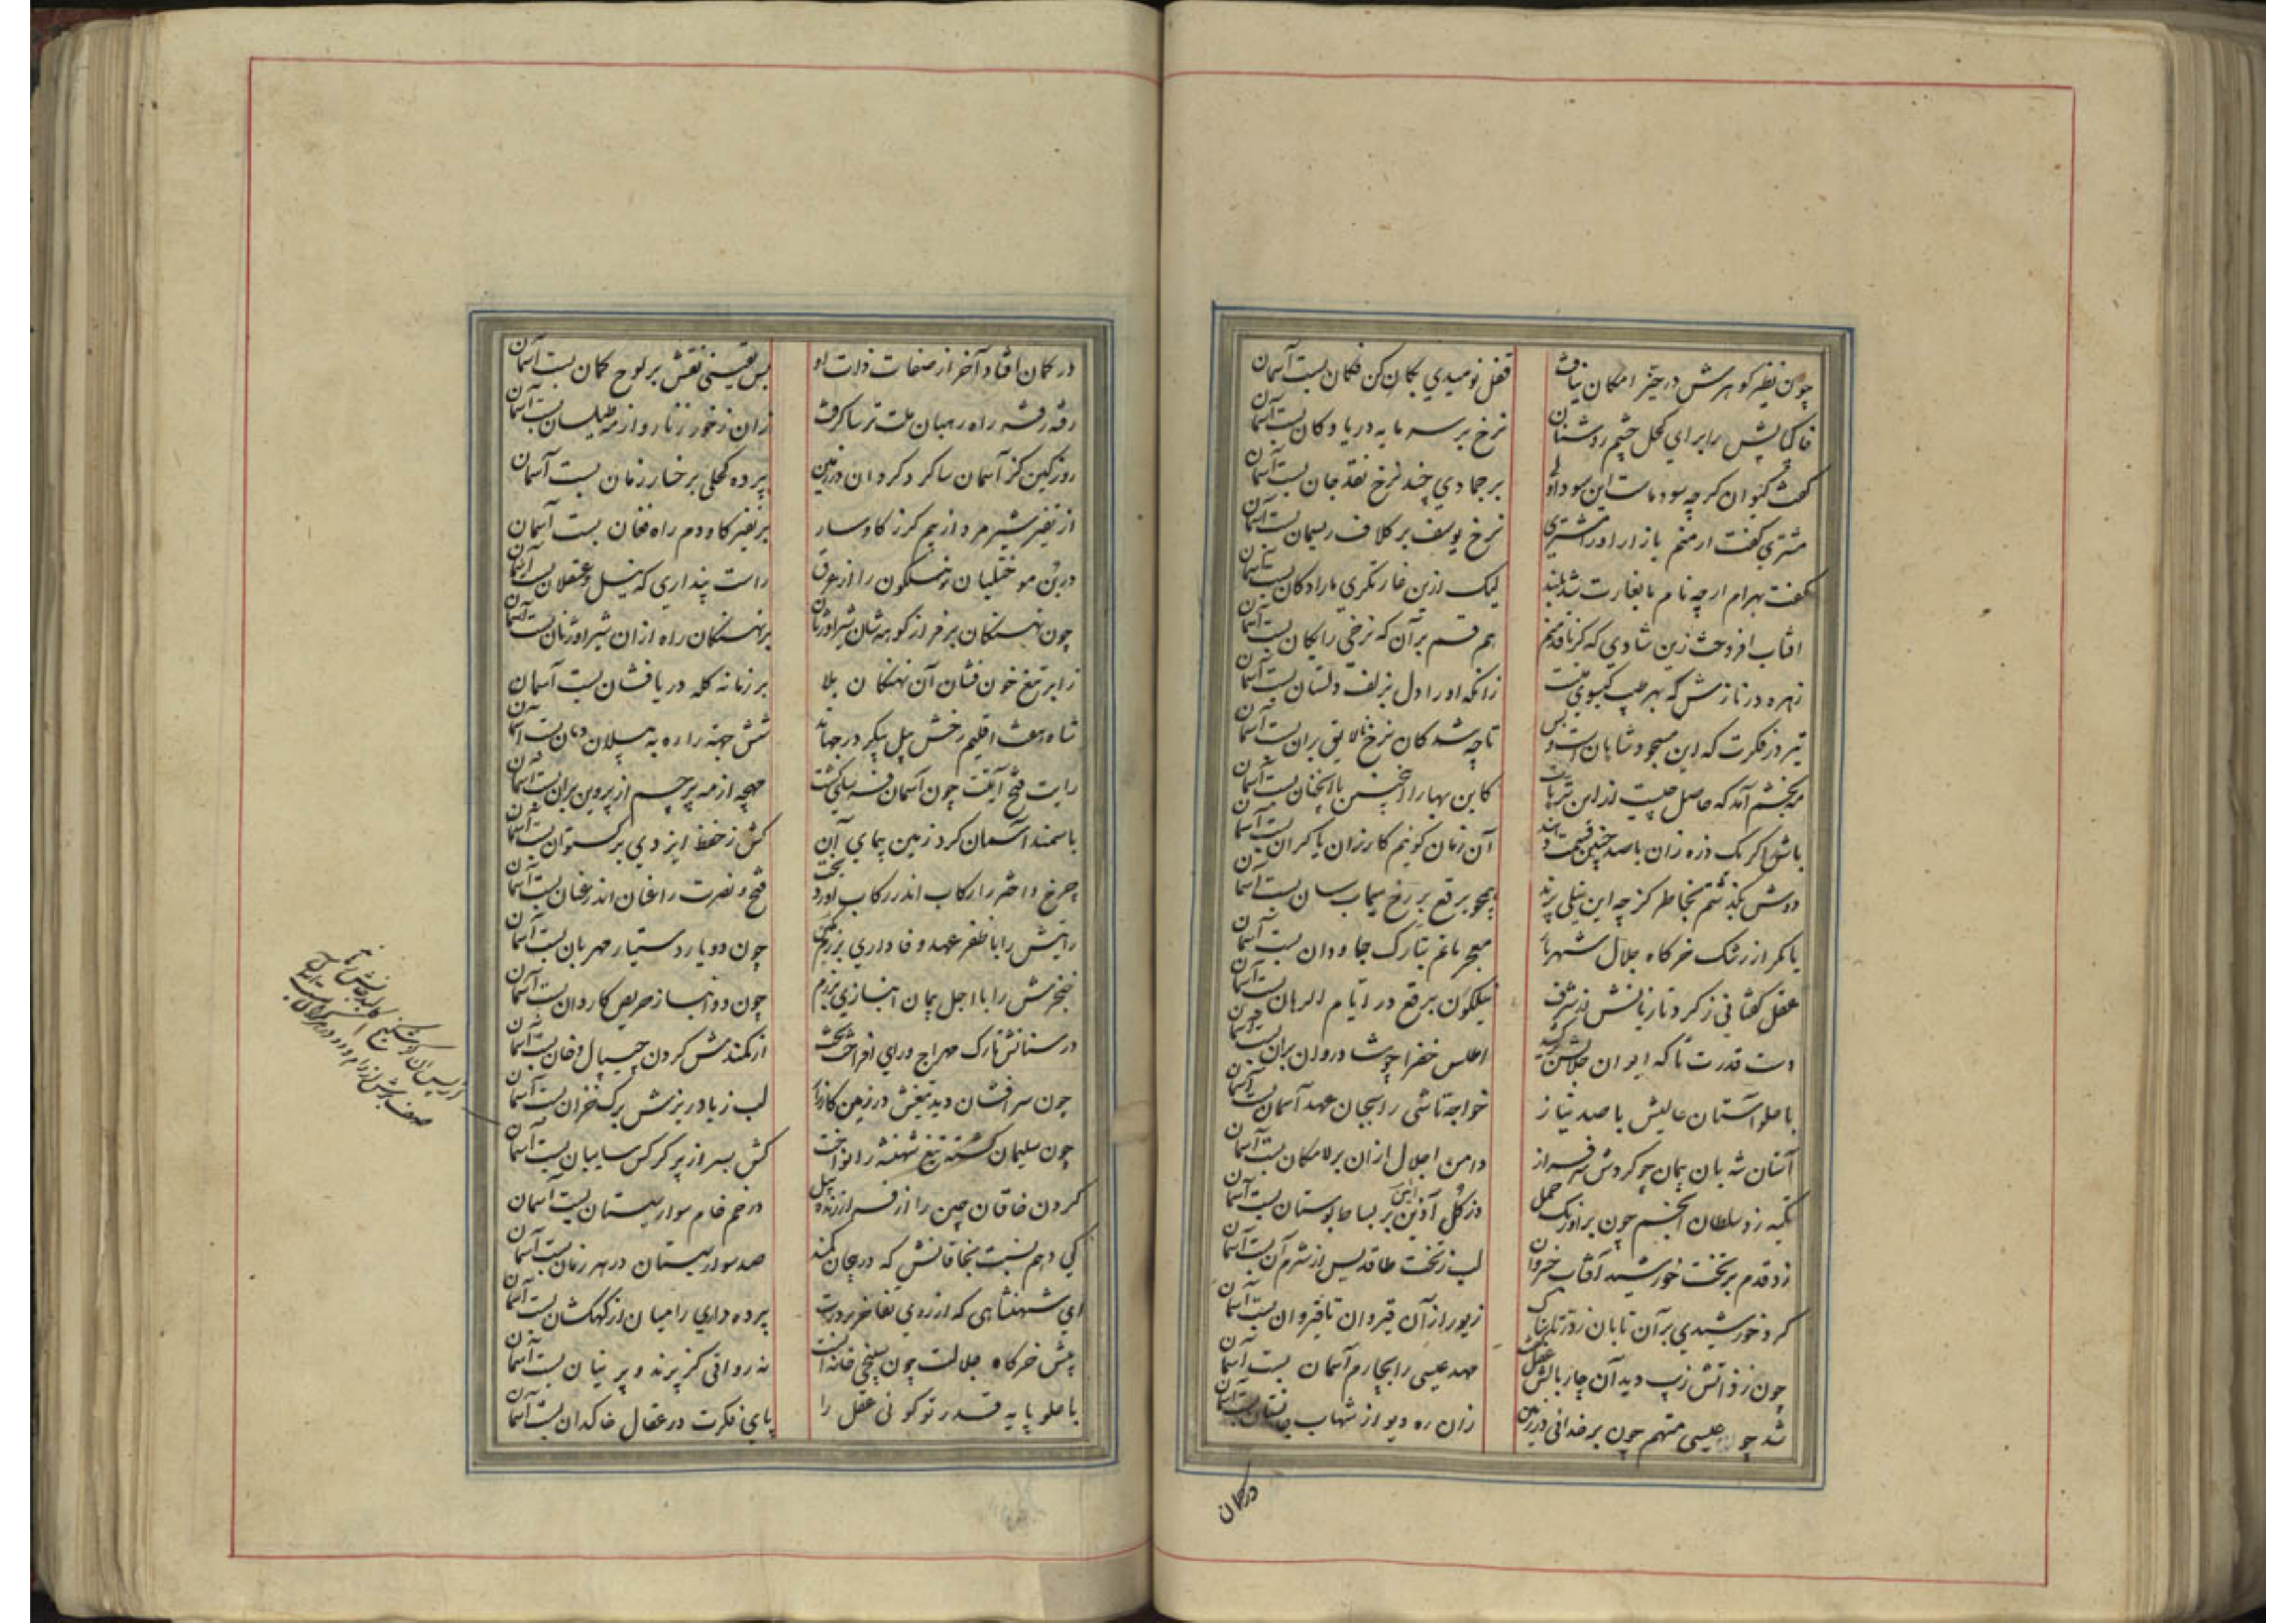 چون نظیر گوهرش در حیز امکان نیافت قفل نومیدی بکان کن فکان بست آسمان
خاکپایش را برای کحل چشم روشنان نرخ بر سرمایه دریا و کان بست آسمان
گفت کیوان گرچه سود ماست این سودا ولی بر جمادی چند نرخ نقد جان بست آسمان
مشتری گفت ار منم بازار او را مشتری نرخ یوسف بر کلاف ریسمان بست آسمان
گفت بهرام ارچه نام ما بغارت شد بلند لیک ازین غارتگری ما را دکان بست آسمان
افتاب افروخت زین شادی که گر ناقد منم هم قسم بر آن که نرخی رایگان بست آسمان
زهره در نازش که بهر طیب گیسوی منست زانکه او را دل بزلف دلستان بست آسمان
تیر در فکرت که این مسجود شاهان است و بس تا چه شد کان نرخ نالایق بران بست آسمان
مه بخشم آمد که حاصل چیست از این ترهات کاین بها را اینچنین یا آنچنان بست آسمان
باش اگر یک ذره زان با صد چنین قیمت دهند آن زمان گویم که ارزان یا گران بست آسمان
دوش بگذشتم بخاطر کز چه این نیلی پرند همچو برقع بر رخ سیماب سان بست آسمان
یا مگر از رشک خرگاه جلال شهریار معجر ماتم بتارک جاودان بست آسمان
عقل گفتا نی ز گرد تازیانش در شرف نیلگون برقع در ایام الرهان بست آسمان
دست قدرت تا که ایوان جلالش برکشید اطلس خضرا چو شادروان بران بست آسمان
با علو آستان عالیش با صد نیاز خواجه تاشی را بجان عهد آسمان بست آسمان
آستان شه بان پیمان چو کردش سرفراز دامن اجلال ازان بر لامکان بست آسمان
تکیه زد سلطان انجم چون بر اورنگ حمل وز گل آذین بر بساط بوستان بست آسمان
زد قدم بر تخت خورشید آفتاب خسروان لب ز تخت طاقدیس از شرم آن بست آسمان
کرد خورشیدی بر آن تابان ز زر تابناک زیور از آن قیروان تا قیروان بست آسمان
چون ز ذاتش زیب دید آن چار بالش عقل گفت مهد عیسی را بچارم آسمان بست آسمان
شد چو عیسی متهم چون بر خدائی در زمین زان ره دیو از شهاب بی نشان بست آسمان
در گمان
در گمان افتاد آخر از صفات ذات او بس یقینی نقش بر لوح گمان بست آسمان
رفته رفته راه رهبان ملت ترسا گرفت زان ز خور زنار و از مه طیلسان بست آسمان
روز کین کز آسمان سا گرد گردان در زمین پرده کحلی بر خسار زمان بست آسمان
از نفیر شیر مرد از بیم گرز گاوسار بر نفیر گاودم راه فغان بست آسمان
درین مو ختلیان نیلگون را از عرق راست پنداری که نیل و عسقلان بست آسمان
چون نهنگان بر فراز کوهه شان شیر اوژنان بر نهنگان راه ازان شیر اوژنان بست آسمان
ز ابر تیغ خون فشان آن نهنگان بلا بر زمانه کله دریا فشان بست آسمان
شاه هفت اقلیم رخش پیل پیکر در جهاند شش جهة را ره به پیلان دمان بست آسمان
رایت فتح آیتت چون آسمان فرسای گشت مهچه از مه پرچم از پروین بران بست آسمان
با سمند آسمان گرد زمین پیمای آن کش ز حفظ ایزدی برگستوان بست آسمان
چرخ و اختر را رکاب اندر رکاب آورد بخت فتح و نصرت را عنان اندر عنان بست آسمان
رایتش را با ظفر عهد وفاداری بزرم چون دو یار دستیار مهربان بست آسمان
خنجرش را با اجل پیمان انبازی برزم چون دو انباز حریص کاردان بست آسمان
در ستانش تارک مهراج و رای افراخت بخت از کمندش گردن چیپال و خان بست آسمان
چون سر افشان دید تیغش در زمین کارزار لب ز باد ریزش برگ خزان بست آسمان
چون سلیمان گشته تیغ شهنشه را نواخت کش بسر از پر کرکس سایبان بست آسمان
گردن خاقان چین را از فراز زنده پیل در خم خام سوار سیستان بست آسمان
کی دهم نسبت بخاقانش که در جان کمند صد سوار سیستان در هر زمان بست آسمان
ای شهنشاهی که از روی تفاخر بر درت پرده داری را میان از کهکشان بست آسمان
پیش خرگاه جلالت چون سپنجی خانه است نه رواقی کز پرند و پرنیان بست آسمان
با علو پایه قدر تو گوئی عقل را پای فکرت در عقال خاکدان بست آسمان